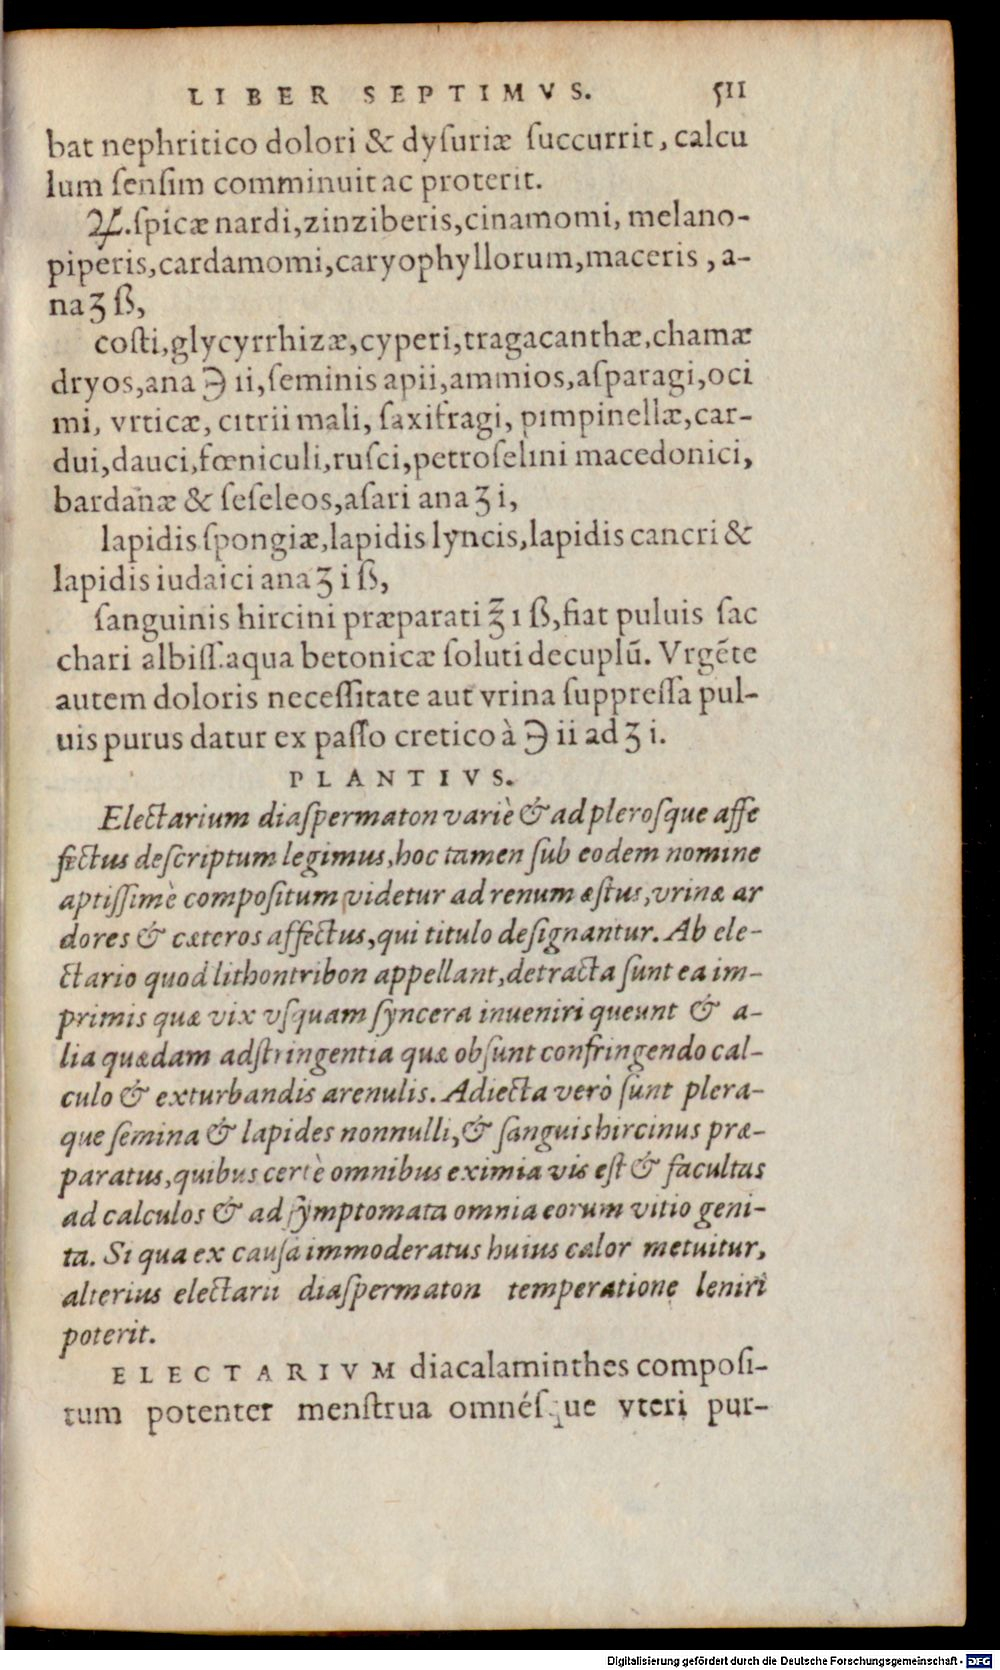 LIBER SEPTIMVS. 511
bat nephritico dolori & dysuriæ succurrit, calcu
lum sensim comminuit ac proterit.
♃.spicæ nardi,zinziberis,cinamomi, melano-
piperis,cardamomi,caryophyllorum,maceris , a-
na ʒ ß,
costi,glycyrrhizæ,cyperi,tragacanthæ,chamæ
dryos,ana ℈ ii,seminis apii,ammios,asparagi,oci
mi, vrticæ, citrii mali, saxifragi, pimpinellæ,car-
dui,dauci,fœniculi,rusci,petroselini macedonici,
bardanæ & seseleos,asari ana ʒ i,
lapidis spongiæ,lapidis lyncis,lapidis cancri &
lapidis iudaici ana ʒ i ß,
sanguinis hircini præparati ℥ i ß,fiat puluis sac
chari albiss.aqua betonicæ soluti decuplū. Vrgēte
autem doloris necessitate aut vrina suppressa pul-
uis purus datur ex passo cretico à ℈ ii ad ʒ i.
PLANTIVS.
Electarium diaspermaton variè & ad plerosque affe
fectus descriptum legimus,hoc tamen sub eodem nomine
aptissimè compositum videtur ad renum æstus,vrinæ ar
dores & cæteros affectus,qui titulo designantur. Ab ele-
ctario quod lithontribon appellant,detracta sunt ea im-
primis quæ vix vsquam syncera inueniri queunt & a-
lia quædam adstringentia quæ obsunt confringendo cal-
culo & exturbandis arenulis. Adiecta verò sunt plera-
que semina & lapides nonnulli,& sanguis hircinus præ-
paratus,quibus certè omnibus eximia vis est & facultas
ad calculos & ad symptomata omnia eorum vitio geni-
ta. Si qua ex causa immoderatus huius calor metuitur,
alterius electarii diaspermaton temperatione leniri
poterit.
ELECTARIVM diacalaminthes composi-
tum potenter menstrua omnésque vteri pur-
Digitalisierung gefördert durch die Deutsche Forschungsgemeinschaft - DFG